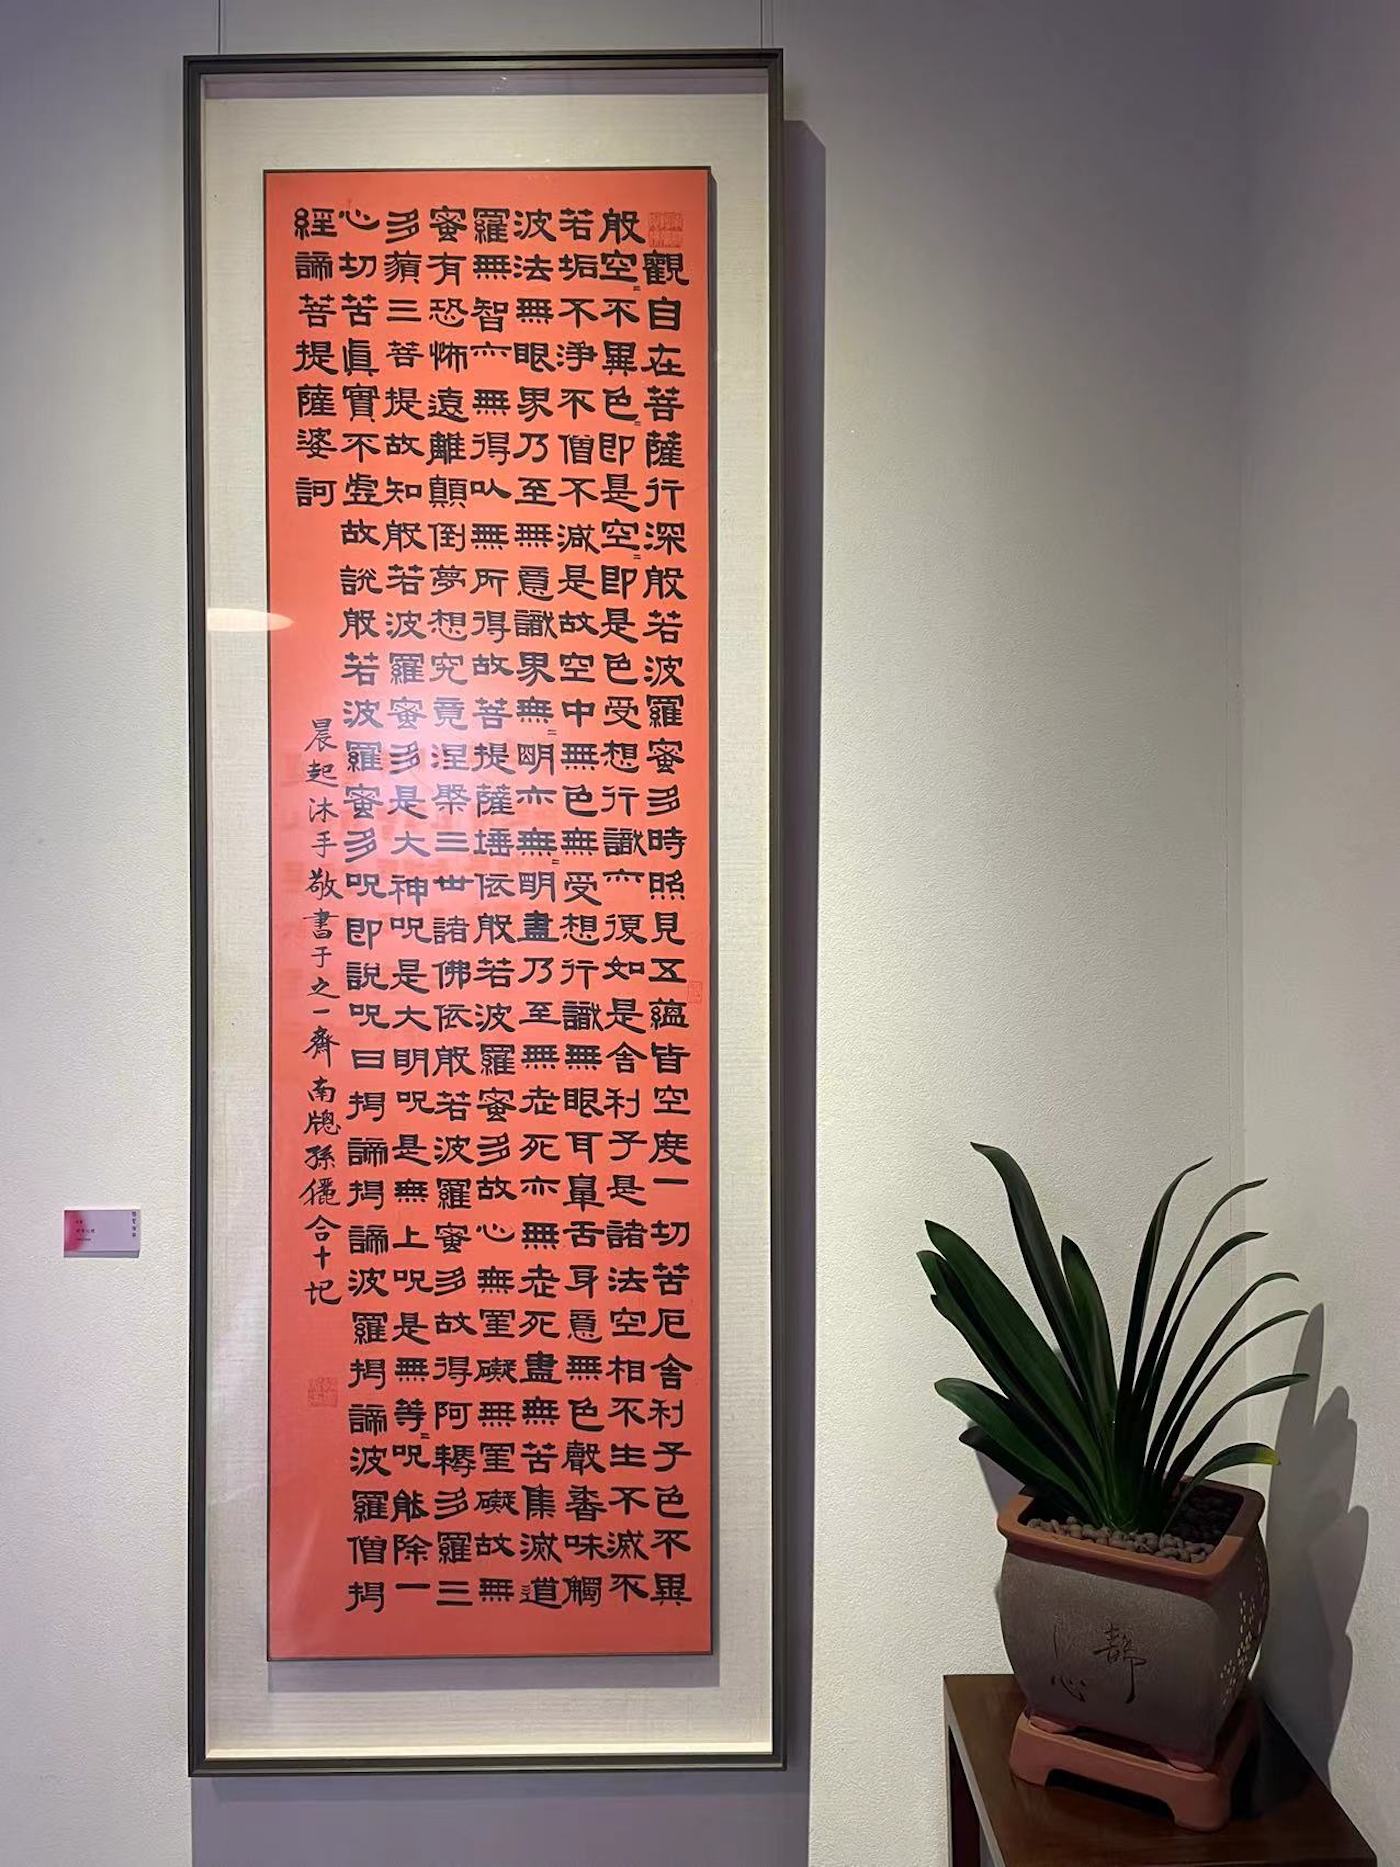 般若波羅蜜多心經
觀自在菩薩行深般若波羅蜜多時照見五蘊皆空度一切苦厄舍利子色不異
空〻不異色〻即是空〻即是色受想行識亦復如是舍利子是諸法空相不生不滅不
垢不淨不僧不減是故空中無色無受想行識無眼耳鼻舌身意無色聲香味觸
法無眼界乃至無意識界無〻明亦無〻明盡乃至無老死亦無老死盡無苦集滅道
無智亦無得以無所得故菩提薩埵依般若波羅蜜多故心無罣礙無罣礙故無
有恐怖遠離顛倒夢想究竟涅槃三世諸佛依般若波羅蜜多故得阿耨多羅三
藐三菩提故知般若波羅蜜多是大神咒是大明咒是無上咒是無等〻咒能除一
切苦真實不虛故說般若波羅蜜多咒即說咒曰揭諦揭諦波羅揭諦波羅僧揭
諦菩提薩婆訶
晨起沐手敬書于之一齋南牕孫儷合十記
靜
心